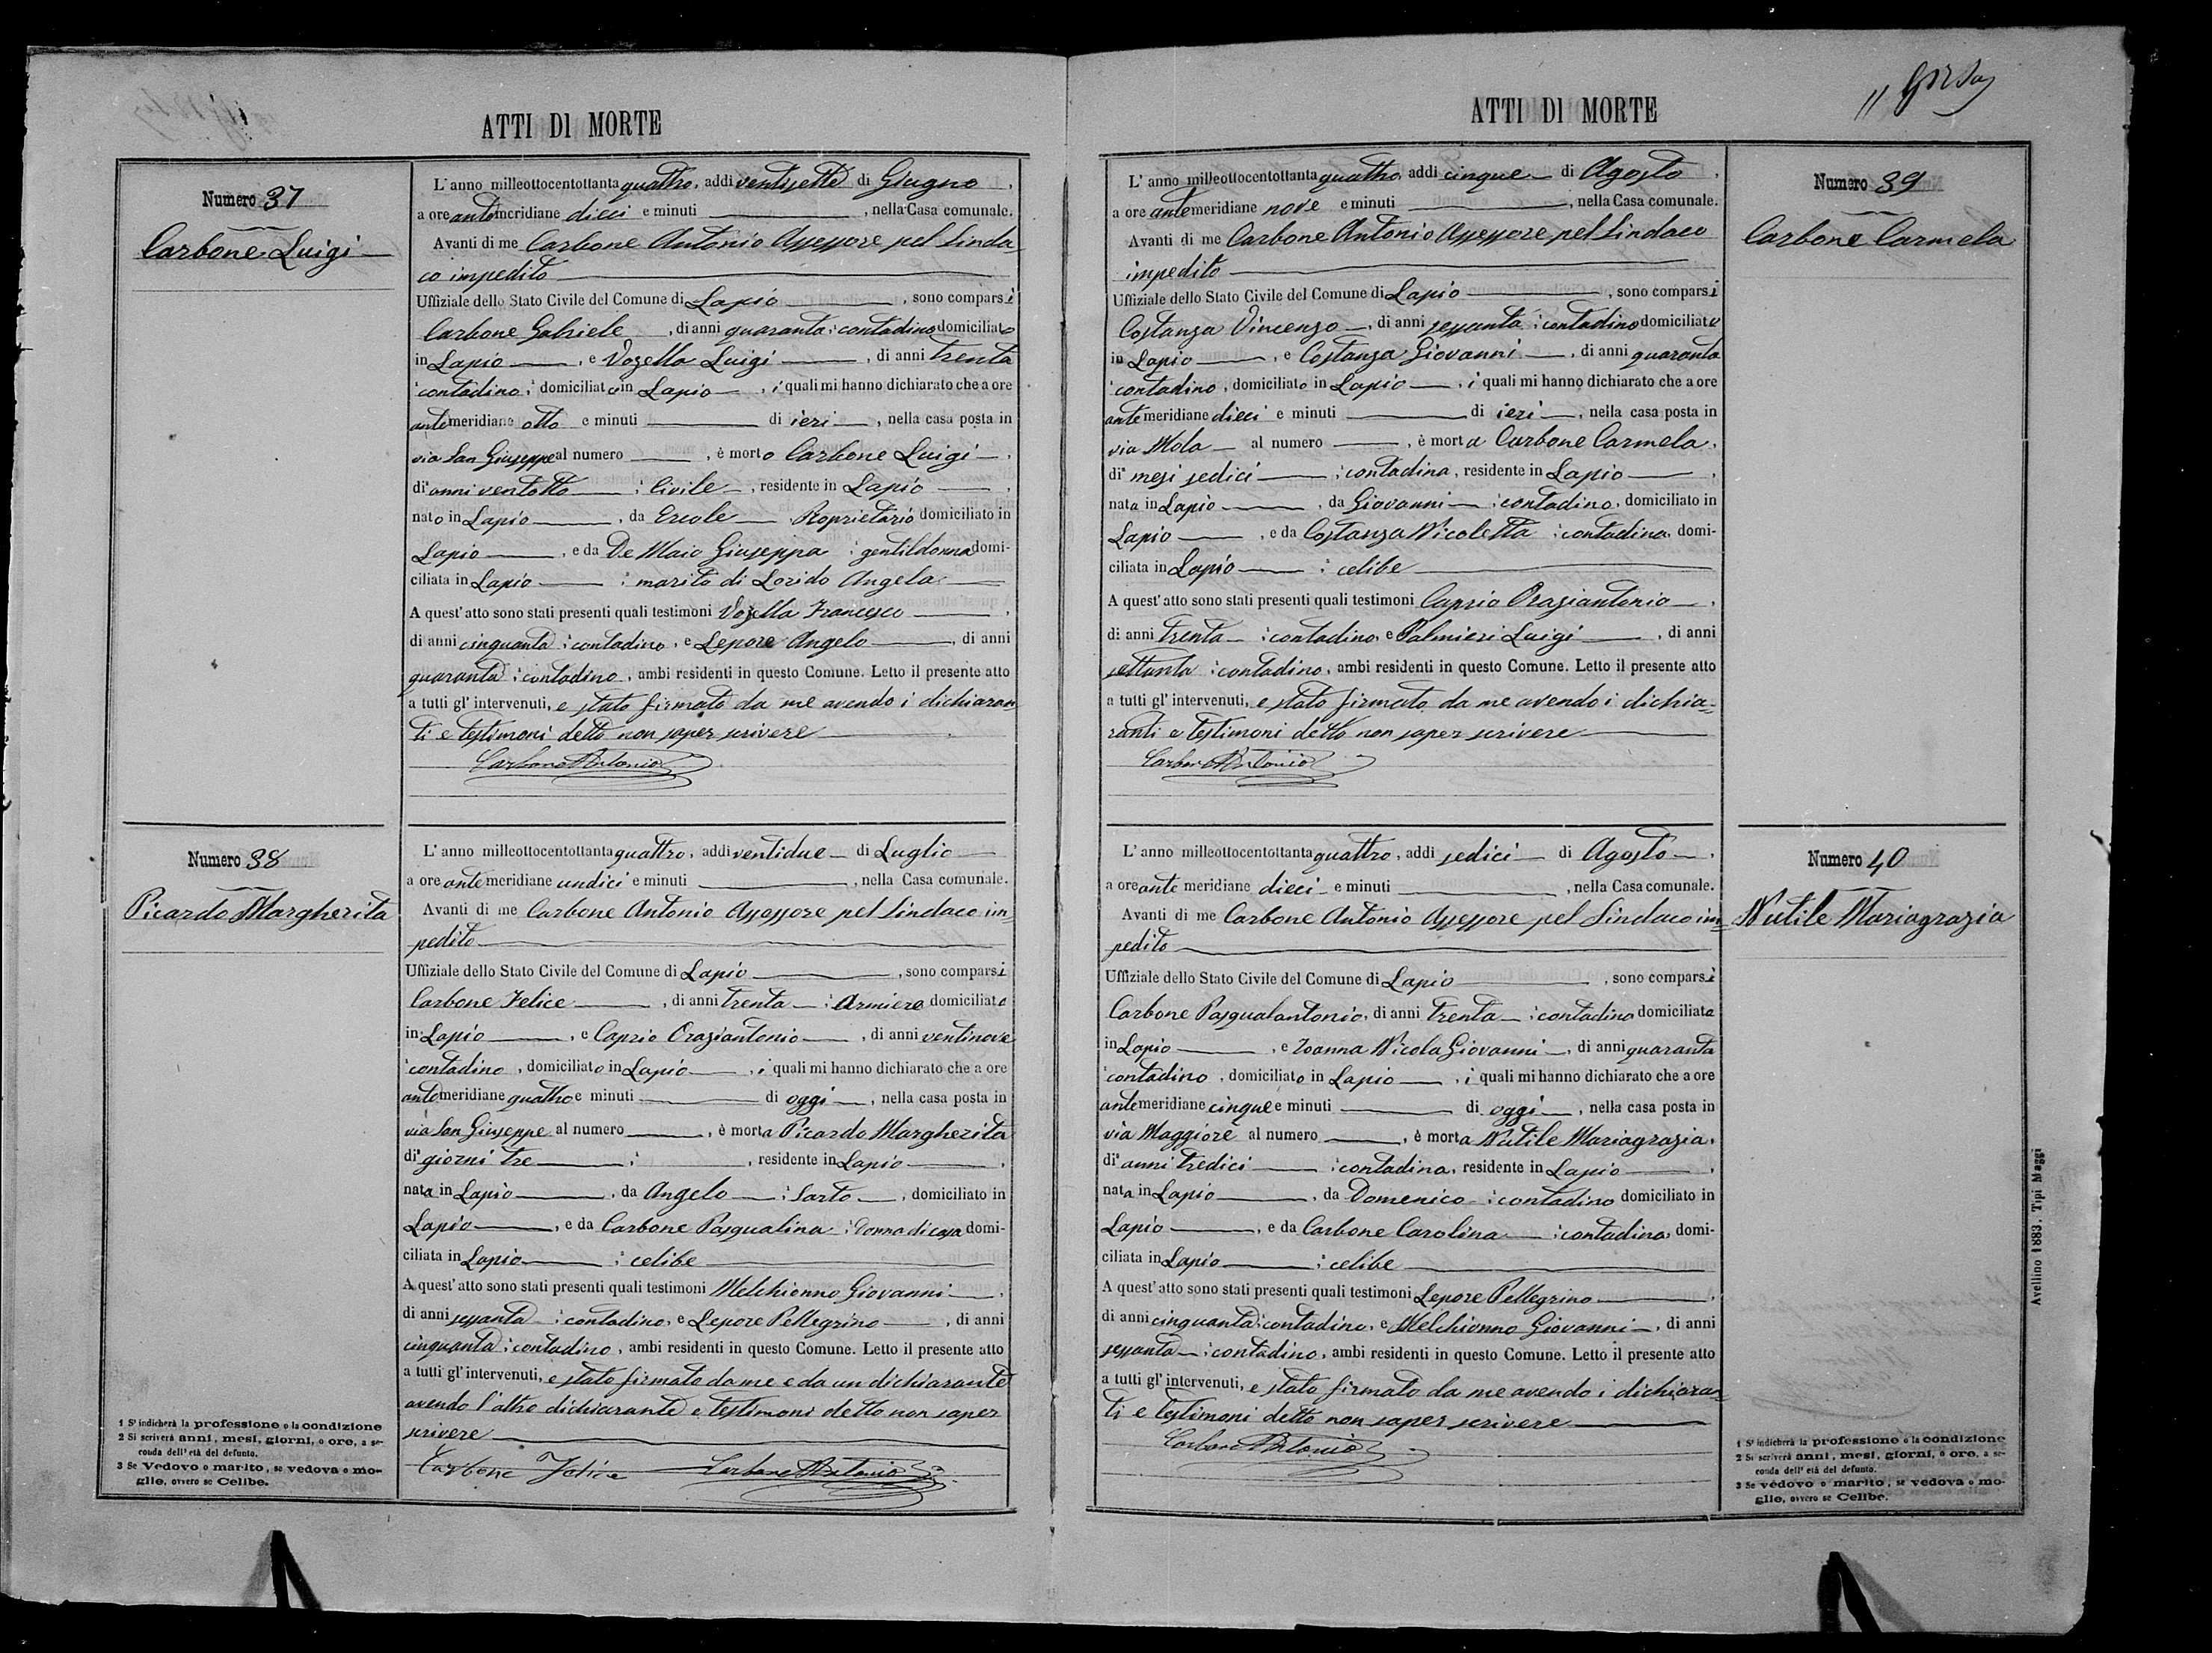 ATTI DI MORTE
Numero 37
Carbone Luigi
L'anno milleottocentottantaquattro, addi ventisette di Giugno,
a ore antemeridiane dieci e minuti, nella Casa comunale.
Avanti di me Carbone Antonio Assessore pel Sinda-
co impedito
Uffiziale dello Stato Civile del Comune di Lapio, sono comparsi
Carbone Gabriele, di anni quaranta; contadino domiciliato
in Lapio, e Vozella Luigi, di anni trenta
contadino, domiciliato in Lapio, i quali mi hanno dichiarato che a ore
antemeridiane otto e minuti di ieri, nella casa posta in
via San Giuseppe al numero, è morto Carbone Luigi,
di anni ventotto; Civile, residente in Lapio,
nato in Lapio, da Ercole Proprietario domiciliato in
Lapio, e da De Maio Giuseppa; gentildonna domi-
ciliata in Lapio; marito di Lorido Angela
A quest'atto sono stati presenti quali testimoni Vozella Francesco,
di anni cinquanta; contadino, e Lepore Angelo, di anni
quaranta; contadino, ambi residenti in questo Comune. Letto il presente atto
a tutti gl'intervenuti, e stato firmato da me avendo i dichiaran-
ti e testimoni detto non saper scrivere
Carbone Antonio
Numero 38
Picardo Margherita
L'anno milleottocentottantaquattro, addi ventidue di Luglio
a ore antemeridiane undici e minuti, nella Casa comunale.
Avanti di me Carbone Antonio Assessore pel Sindaco im-
pedito
Uffiziale dello Stato Civile del Comune di Lapio, sono comparsi
Carbone Felice, di anni trenta; Armiere domiciliato
in Lapio, e Caprio Oraziantonio, di anni ventinove
contadino, domiciliato in Lapio, i quali mi hanno dichiarato che a ore
antemeridiane quattro e minuti di oggi, nella casa posta in
via San Giuseppe al numero, è morta Picardo Margherita
di giorni tre; residente in Lapio,
nata in Lapio, da Angelo; Sarto, domiciliato in
Lapio, e da Carbone Pasqualina; Donna di casa domi-
ciliata in Lapio; celibe
A quest'atto sono stati presenti quali testimoni Melchionno Giovanni,
di anni sessanta; contadino, e Lepore Pellegrino, di anni
cinquanta; contadino, ambi residenti in questo Comune. Letto il presente atto
a tutti gl'intervenuti, e stato firmato da me e da un dichiarante
avendo l'altro dichiarante e testimoni detto non saper
scrivere
Carbone Felice Carbone Antonio
1 S'indicherà la professione o la condizione
2 Si scriverà anni, mesi, giorni, o ore, a se-
conda dell'età del defunto.
3 Se Vedovo o marito, se vedova o mo-
glie, ovvero se Celibe.
ATTI DI MORTE
11
Numero 39
Carbone Carmela
L'anno milleottocentottantaquattro, addi cinque di Agosto,
a ore antemeridiane nove e minuti, nella Casa comunale.
Avanti di me Carbone Antonio Assessore pel Sindaco
impedito
Uffiziale dello Stato Civile del Comune di Lapio, sono comparsi
Costanza Vincenzo, di anni sessanta; contadino domiciliato
in Lapio, e Costanza Giovanni, di anni quaranta
contadino, domiciliato in Lapio, i quali mi hanno dichiarato che a ore
antemeridiane dieci e minuti di ieri, nella casa posta in
via Mola al numero, è morta Carbone Carmela,
di mesi sedici; contadina, residente in Lapio,
nata in Lapio, da Giovanni; contadino, domiciliato in
Lapio, e da Costanza Nicoletta; contadina, domi-
ciliata in Lapio; celibe
A quest'atto sono stati presenti quali testimoni Caprio Oraziantonio,
di anni trenta; contadino, e Palmieri Luigi, di anni
settanta; contadino, ambi residenti in questo Comune. Letto il presente atto
a tutti gl'intervenuti, e stato firmato da me avendo i dichia-
ranti e testimoni detto non saper scrivere
Carbone Antonio
Numero 40
Nutile Mariagrazia
L'anno milleottocentottantaquattro, addi sedici di Agosto,
a ore antemeridiane dieci e minuti, nella Casa comunale.
Avanti di me Carbone Antonio Assessore pel Sindaco im-
pedito
Uffiziale dello Stato Civile del Comune di Lapio, sono comparsi
Carbone Pasqualantonio, di anni trenta; contadino domiciliato
in Lapio, e Zoanna Nicola Giovanni, di anni quaranta
contadino, domiciliato in Lapio, i quali mi hanno dichiarato che a ore
antemeridiane cinque e minuti di oggi, nella casa posta in
via Maggiore al numero, è morta Nutile Mariagrazia,
di anni tredici; contadina, residente in Lapio,
nata in Lapio, da Domenico; contadino domiciliato in
Lapio, e da Carbone Carolina; contadina, domi-
ciliata in Lapio; celibe
A quest'atto sono stati presenti quali testimoni Lepore Pellegrino,
di anni cinquanta; contadino, e Melchionno Giovanni, di anni
sessanta; contadino, ambi residenti in questo Comune. Letto il presente atto
a tutti gl'intervenuti, e stato firmato da me avendo i dichiaran-
ti e testimoni detto non saper scrivere
Carbone Antonio
1 S'indicherà la professione o la condizione
2 Si scriverà anni, mesi, giorni, o ore, a se-
conda dell'età del defunto.
3 Se vedovo o marito, se vedova o mo-
glie, ovvero se Celibe.
Avellino 1883. Tipi Maggi